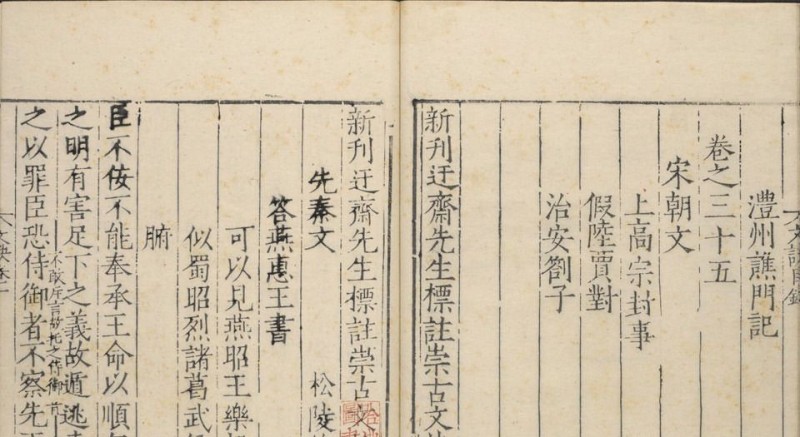 澧州譙門記
卷之三十五
宋朝文
上高宗封事
假陸賈對
治安劄子
新刊迂齋先生標註崇古文
新刊迂齋先生標註崇古文
先秦文
松陵
答燕惠王書
可以見燕昭王樂
似蜀昭烈諸葛武
腑
臣不佞不能奉承王命以順
之明有害足下之義故遁逃
不敢斥言故托之侍御者
之以罪臣恐侍御者不察先